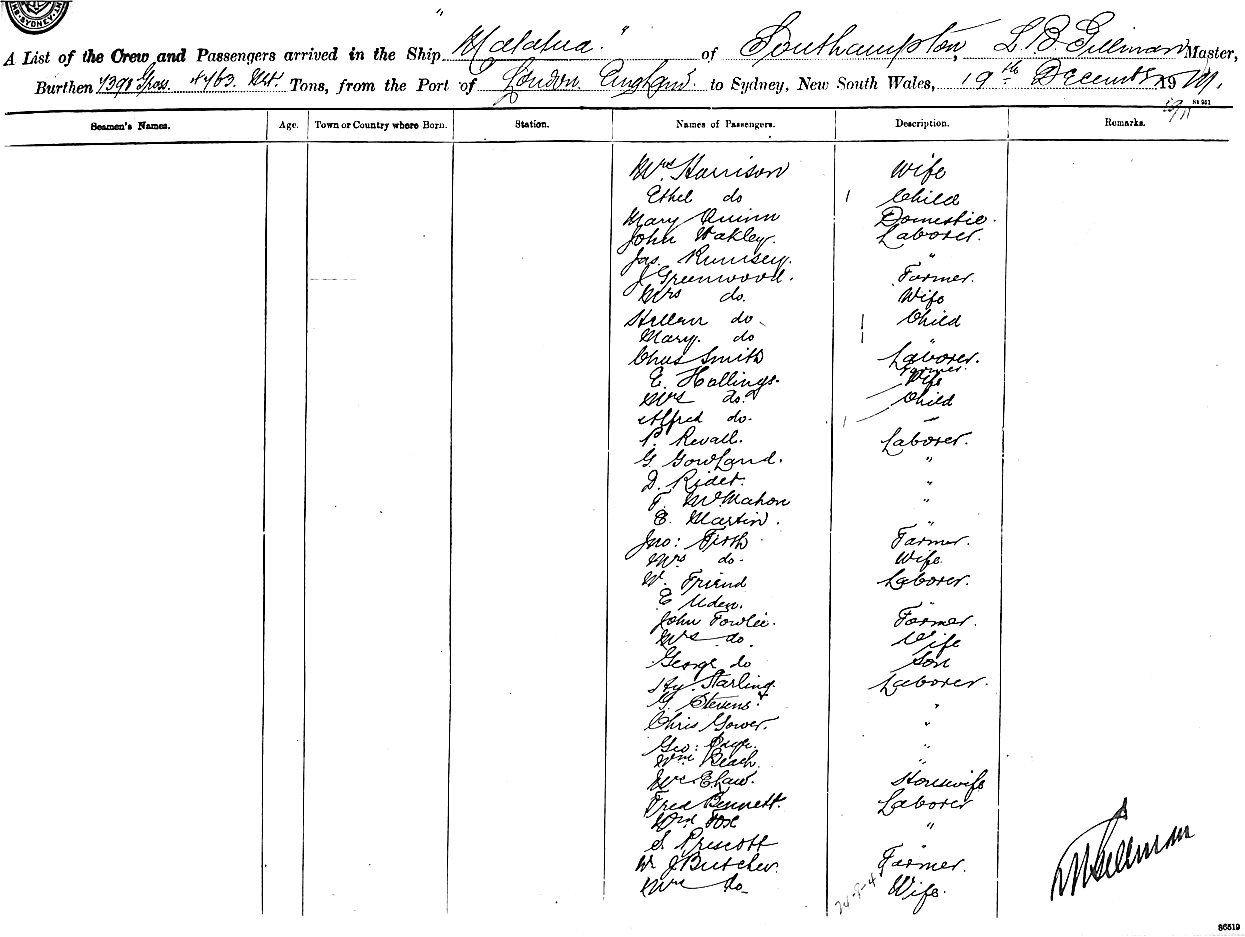 SYDNEY
A List of the Crew and Passengers arrived in the Ship " " of Southampton, L B Gillman Master,
Burthen 7391 Gross. 4763. Net. Tons, from the Port of London England to Sydney, New South Wales, 19th December 19
1911 St 961
Seamen's Names. Age. Town or Country where Born. Station. Names of Passengers. Description. Remarks.
Mrs Harrison Wife
Ethel do 1 Child
Mary Quinn Domestic.
John Wakley. Laborer.
Jas. Rumsey. "
J Greenwood. Farmer.
Mrs do. Wife
do 1 Child
Mary. do 1 "
Chas Smith Laborer.
E. Hollings. Farmer.
Mrs do. Wife
Alfred do. 1 Child
P. Revall. Laborer.
G. Gowland. "
D. Rider. "
T. McMahon "
E. Martin. "
Jno: Farmer.
Mrs do. Wife.
W. Friend Laborer.
E Uden. "
John Fowlie. Farmer.
Mrs do. Wife
George do Son
Hy. Starling Laborer.
G. Stevens. "
Chris Gower. "
Geo: Page. "
Wm Beach. "
Housewife
Fred Bennett. Laborer
Wm Fox "
S. Prescott
W. J Butcher. Farmer.
Mrs do Wife.
Gillman
86519